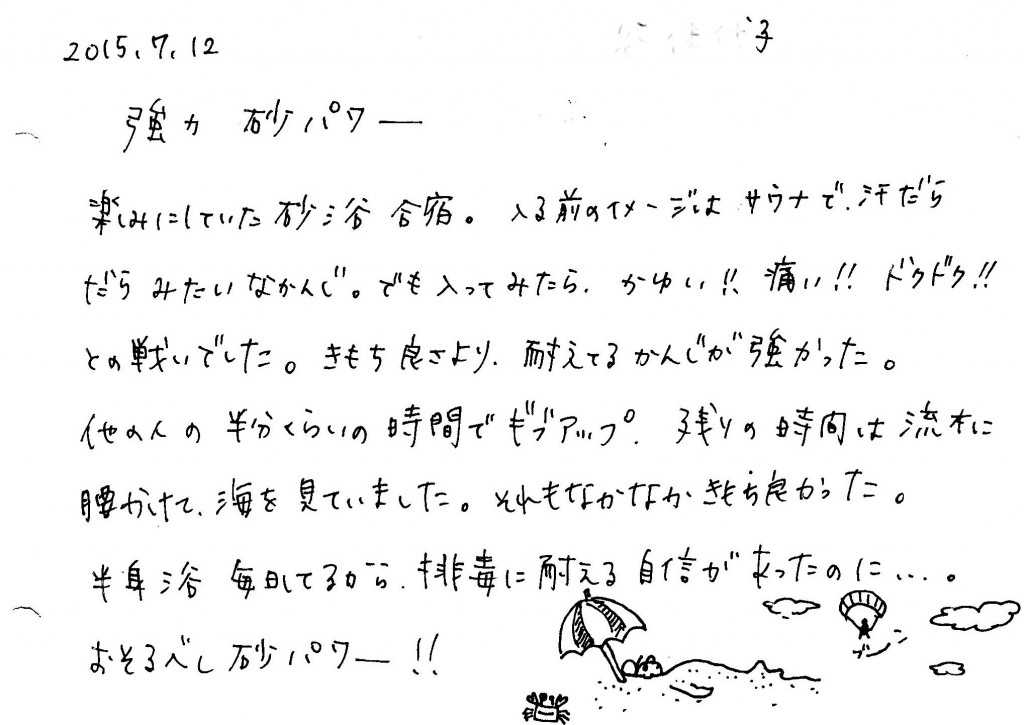 2015.7.12
子
強力 砂パワー
楽しみにしていた砂浴合宿。入る前のイメージはサウナで、汗だら
だらみたいなかんじ。でも入ってみたら、かゆい!! 痛い!! ドクドク!!
との戦いでした。きもち良さより、耐えてるかんじが強かった。
他の人の半分くらいの時間でギブアップ。残りの時間は流木に
腰かけて、海を見ていました。それもなかなかきもち良かった。
半身浴毎日してるから、排毒に耐える自信があったのに…。
おそるべし砂パワー!!